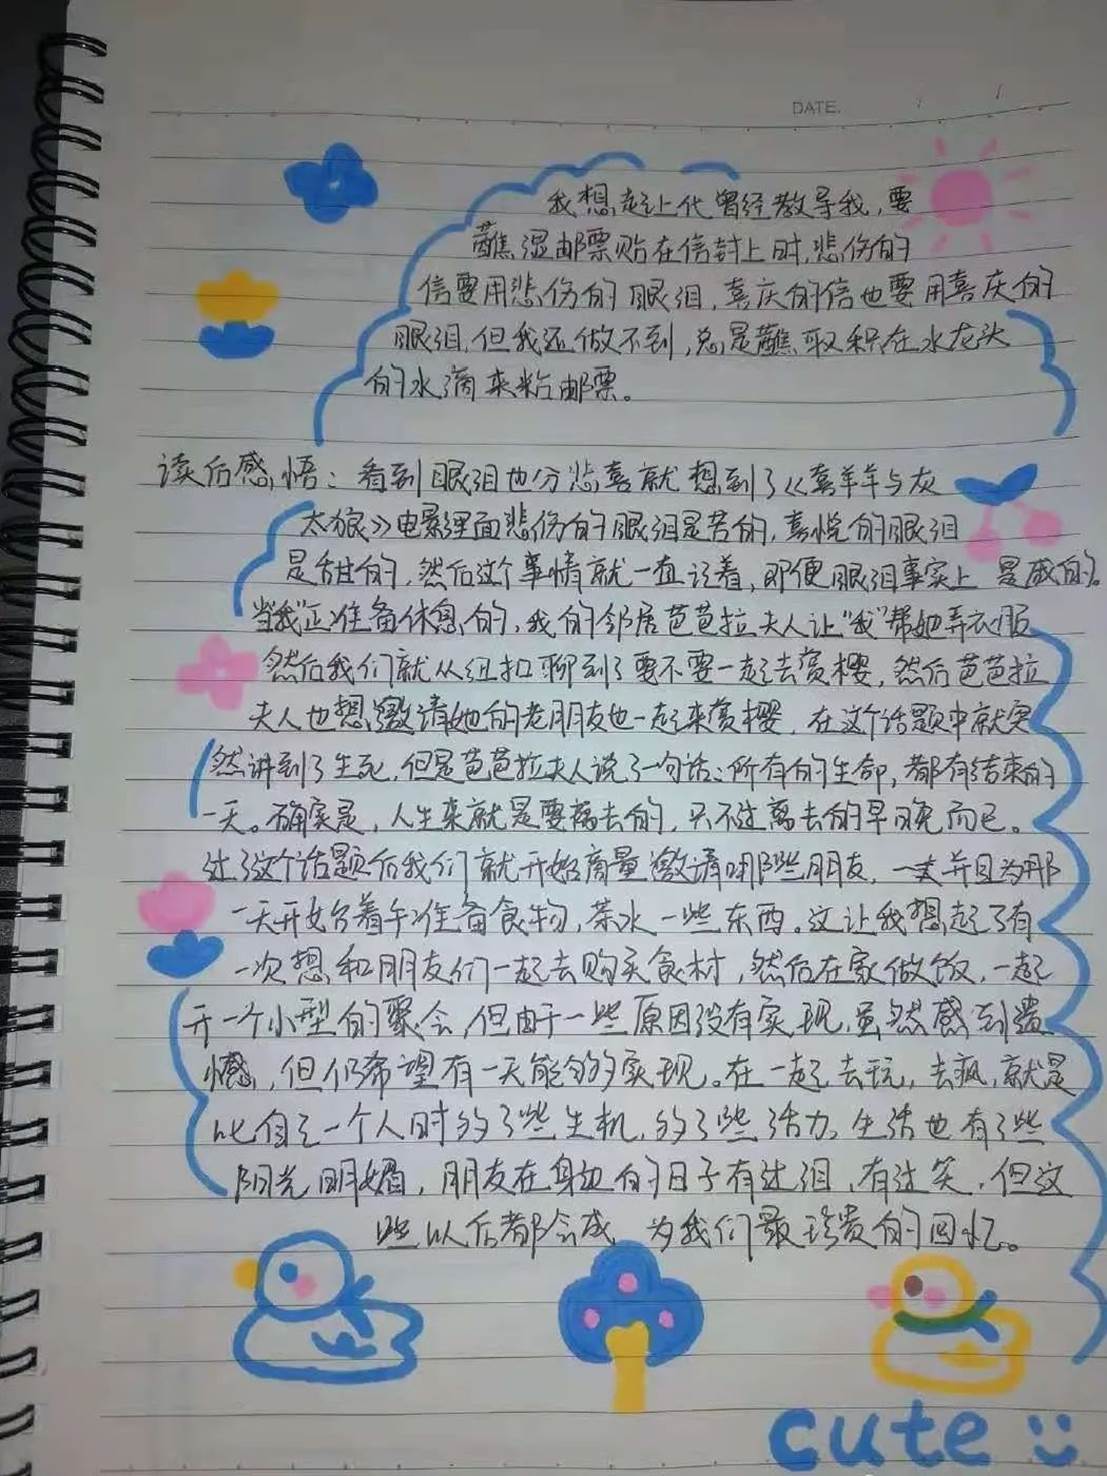 DATE.
我想起上代曾经教导我,要
蘸湿邮票贴在信封上时,悲伤的
信要用悲伤的眼泪,喜庆的信也要用喜庆的
眼泪,但我还做不到,总是蘸取积在水龙头
的水滴来粘邮票。
读后感悟:看到眼泪也分悲喜就想到了《喜羊羊与灰
太狼》电影里面悲伤的眼泪是苦的,喜悦的眼泪
是甜的,然后这个事情就一直记着,即便眼泪事实上是咸的。
当“我”正准备休息的,我的邻居芭芭拉夫人让“我”帮她弄衣服
然后我们就从纽扣聊到了要不要一起去赏樱,然后芭芭拉
夫人也想邀请她的老朋友也一起来赏樱,在这个话题中就突
然讲到了生死,但是芭芭拉夫人说了一句话:所有的生命,都有结束的
一天。确实是,人生来就是要离去的,只不过离去的早晚而已。
过了这个话题后我们就开始商量邀请哪些朋友,并且为那
一天开始着手准备食物,茶水一些东西。这让我想起了有
一次想和朋友们一起去购买食材,然后在家做饭,一起
开一个小型的聚会,但由于一些原因没有实现,虽然感到遗
憾,但仍希望有一天能够实现。在一起去玩,去疯,就是
比自己一个人时多了些生机,多了些活力,生活也有了些
阳光明媚,朋友在身边的日子有过泪,有过笑,但这
些以后都会成为我们最珍贵的回忆。
cute